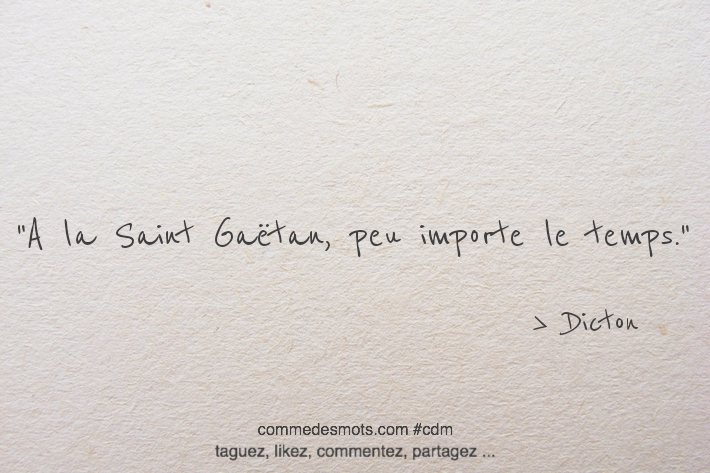 "A la Saint Gaëtan, peu importe le temps."
> Dicton
commedesmots.com #cdm
taguez, likez, commentez, partagez ...